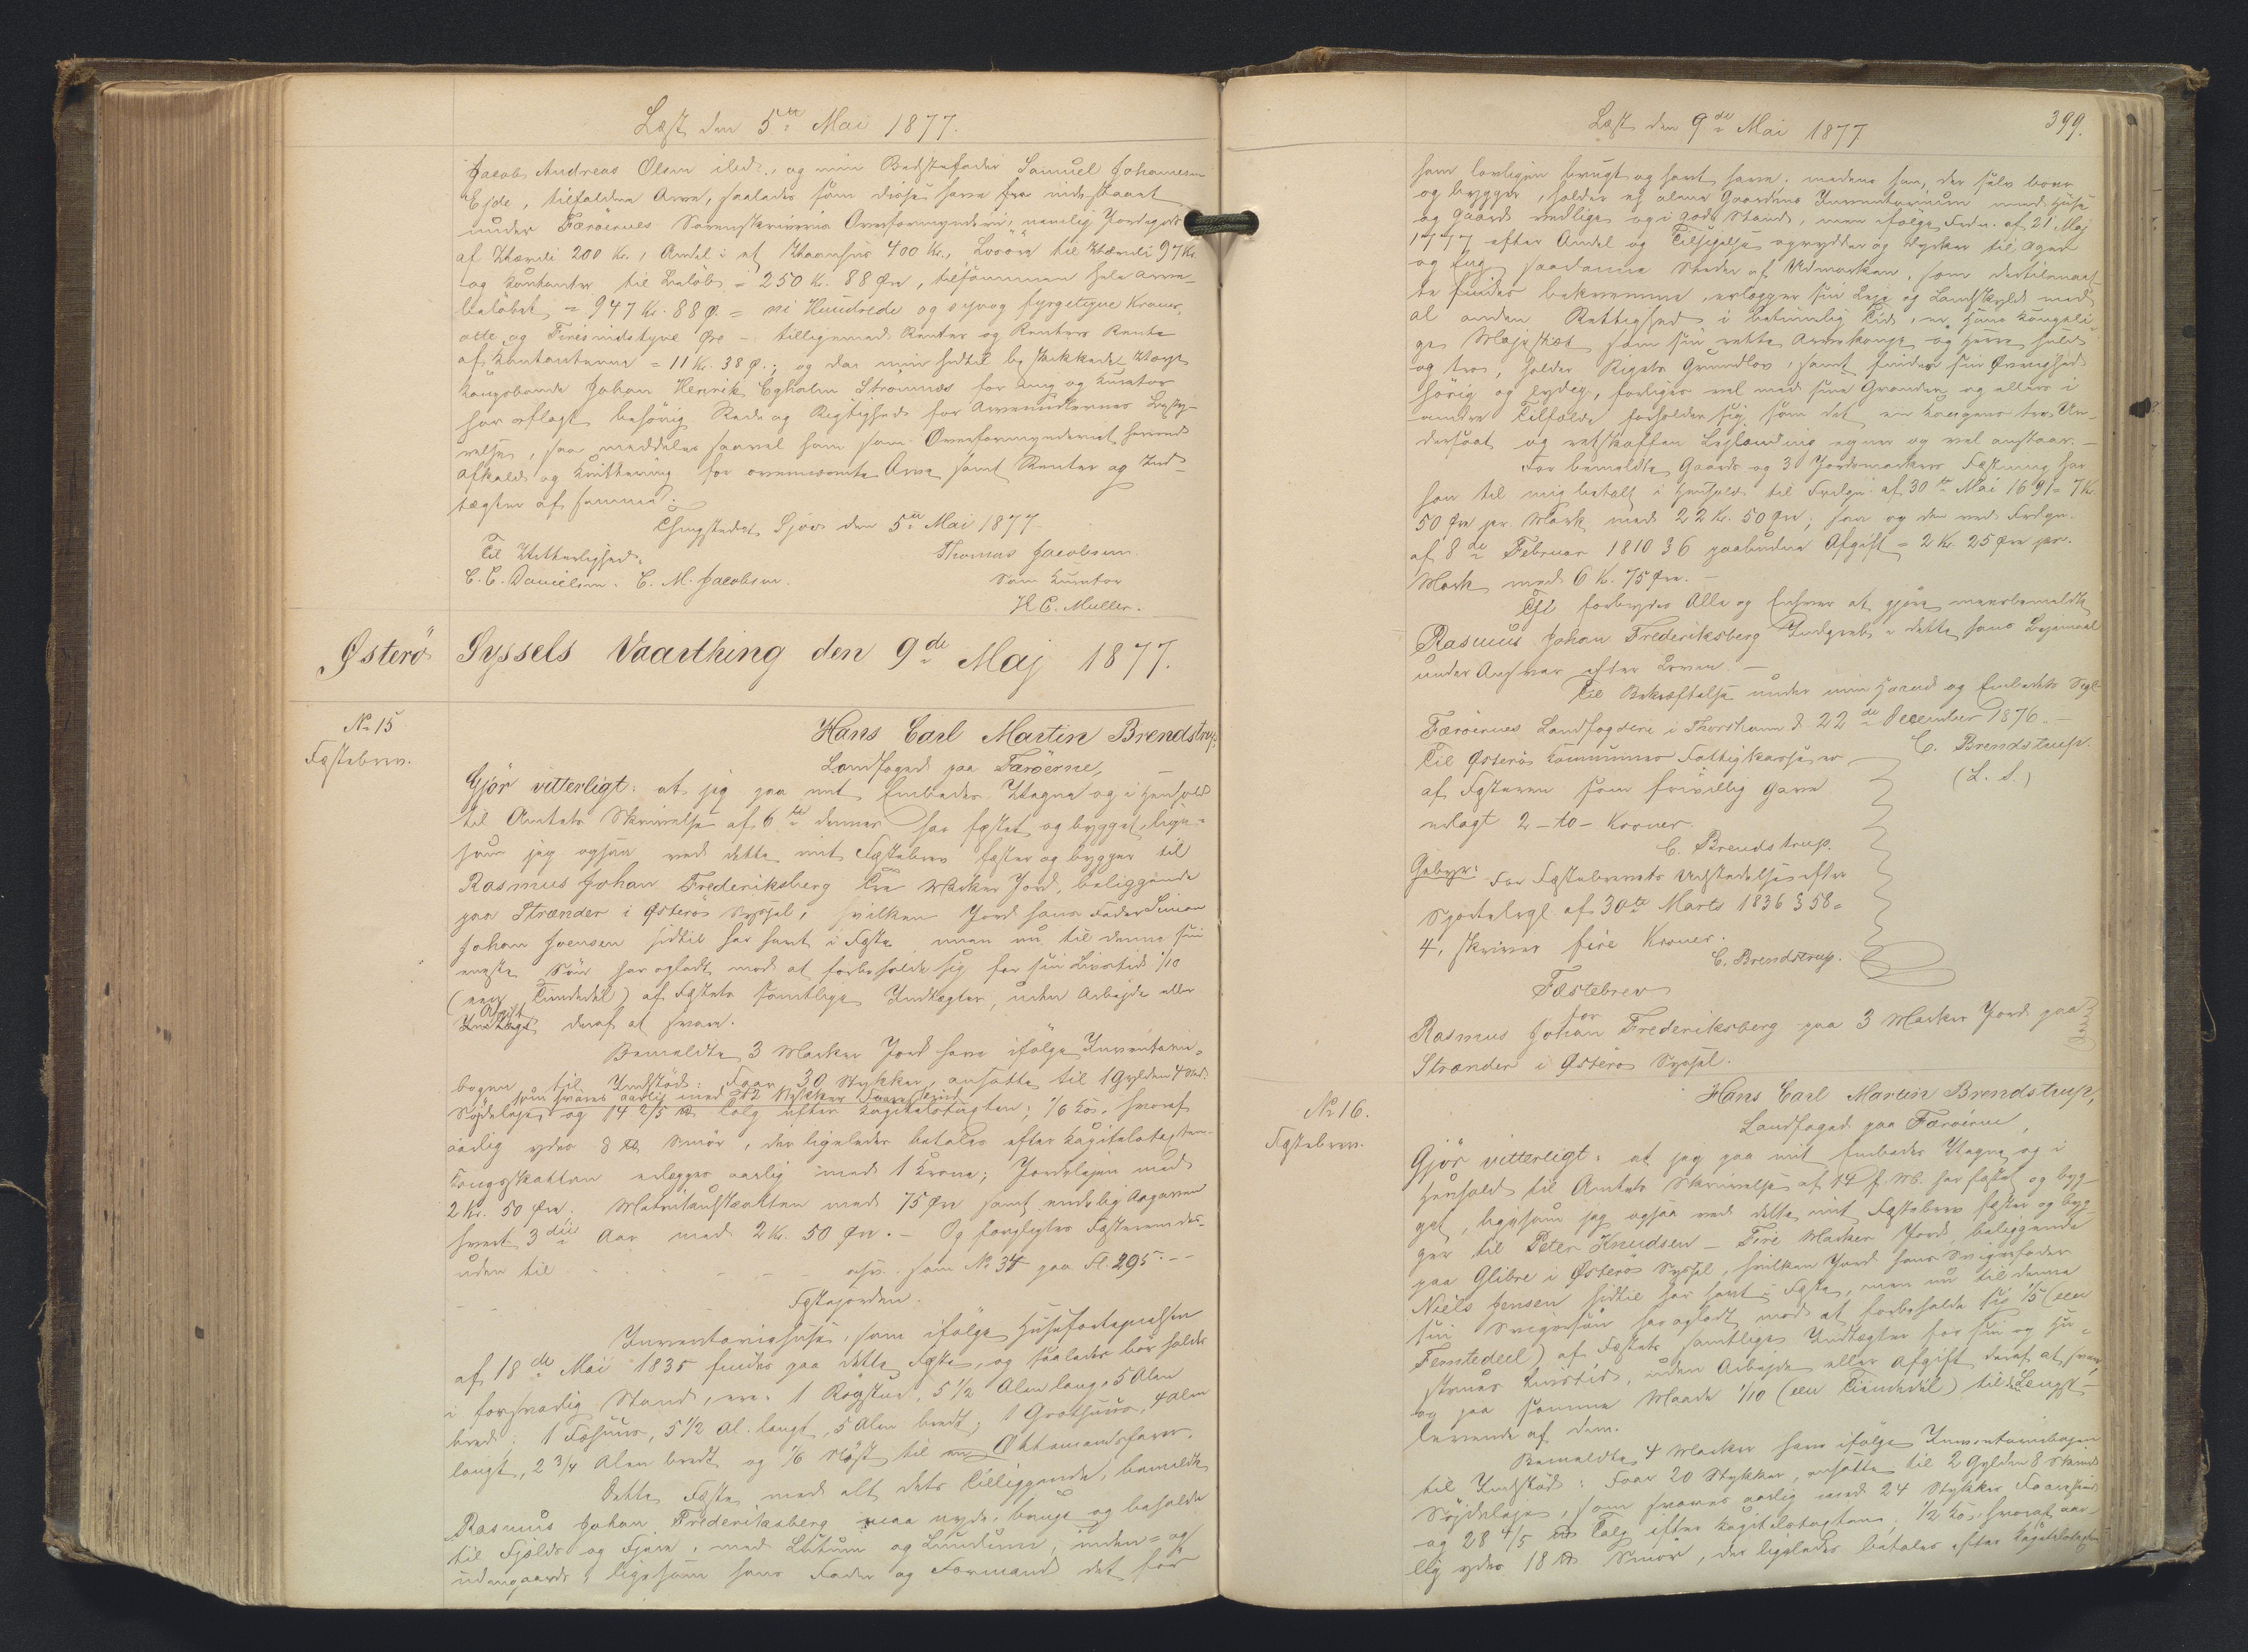 Læst den 5te Mai 1877.
Jacob Andreas Olsen ibid., og min Bedstefader Samuel Johannesen
Ejde, tilfalden Arv, saaledes som disse have henstaaet
under Færøernes Sorenskriveris Overformynderi, nemlig Jordegods
af Værdi 200 Kr., Andel i et Vaanhus 400 Kr., Løsøre til Værdi 97 Kr.
og Kontanter til Beløb = 250 K. 88 Øre, tilsammen hele Arve-
beløbet = 947 Kr. 88 Ø. = ni Hundrede og syv og fyrgetyve Kroner,
otte og Firesindstyve Øre - tilligemed Renter og Renters Rente
af Kontanterne = 11 Kr. 38 Ø.; og da min hidtil beskikkede Værge
Kongsbonde Johan Henrik Egholm Strømnæs for mig og Kurator
har aflagt behørig Rede og Rigtighed for Arvemidlernes Besty-
relse, saa meddeles saavel ham som Overformynderiet herved
Afkald og Kvittering for ovennævnte Arv samt Renter og Ind-
tægter af samme.
Thingstedet Sjov den 5te Mai 1877
Til Vitterlighed: Thomas Jacobsen.
C. C. Danielsen. C. M. Jacobsen. Som Kurator
H. C. Muller.
Østerö Syssels Vaarthing den 9de Maj 1877.
No 15
Fæstebrev.
Hans Carl Martin Brendstrup,
Landfoged paa Færöerne,
Gjör vitterligt: at jeg paa mit Embedes Vegne og i Henhold
til Amtets Skrivelse af 6te dennes har fæstet og bygget, lige-
som jeg ogsaa ved dette mit Fæstebrev fæster og bygger til
Rasmus Johan Frederiksberg Tre Marker Jord, beliggende
paa Strænder i Østerøs Syssel, hvilken Jord hans Fader Simon
Johan Joensen hidtil har havt i Fæste, men nu til denne sin
eneste Søn har opladt mod at forbeholde sig for sin Livstid 1/10
(een Tiendedel) af Fæstets samtlige Indtægter, uden Arbejde eller
Afgift
Indtægt deraf at svare.
Bemeldte 3 Marker Jord have ifølge Inventarie-
bogen til Indstød: Faar 30 Stykker, ansatte til 1 Gylden 4 Skd.
som svares aarlig med 12 Stykker Faareskind
Söjdeleje og 14 2/5 ℔ Talg efter Kapitelstaxten; 1/6 Ko, hvoraf
aarlig ydes 8 ℔ Smör, der ligeledes betales efter Kapitelstaxten.
Kongsskatten erlægges aarlig med 1 Krone; Jordelejen med
2 Kr. 50 Øre. Matrikulskatten med 75 Øre samt endelig Aagaven
hvert 3die Aar med 2 K. 50 Øre. - Og forpligtes Fæsteren des-
uden til - - - - - osv. som No 34 paa Fl. 295 - -
- - - Fæstejorden.
Inventariehuse, som ifølge Husefortegnelsen
af 18de Mai 1835 findes paa dette Fæste, og saaledes bör holdes
i forsvarlig Stand, ere: 1 Røgstue, 5 1/2 Alen lang, 5 Alen
bred; 1 Fæhuus, 5 1/2 Al. langt, 5 Alen bredt; 1 Grothuus, 4 Alen
langt, 2 3/4 Alen bredt og 1/6 Nøst til en Ottemandsfarer.
Dette Fæste med alt dets Tilliggende, bemeldte
Rasmus Johan Frederiksberg maa nyde, bruge og beholde
til Fjelds og Fjære, med Luttum og Lundum, inden- og
udengaards, ligesom hans Fader og Formand det för
Læst den 9de Mai 1877
399.
ham lovligen brugt og havt have; medens han, der selv boer
og bygger, holder ej alene Gaardens Inventarium med Huse
og Gaarde vedlige og i god Stand, men ifølge Frdn. af 21 Maj
1777 efter Andel og Tilsigelse oprydder og dyrker til Ager
og Eng saadanne Steder af Udmarken, som dertil maat-
te findes bekvemme, erlægger sin Leje og Landskyld med
al anden Rettighed i betimelig Tid, er Hans Kongeli-
ge Majestæt som sin rette Arvekonge og Herre huld
og tro, holder Rigets Grundlov, samt finder sin Øvrighed
hørig og lydig, forliges vel med sine Grander og ellers i
andre Tilfælde forholder sig, som det en Kongens tro Un-
dersaat og retskaffen Lejlænding egner og vel anstaar. -
For bemeldte Gaards og 3 Jordmarkers Fæstning har
han til mig betalt i Henhold til Frdgn. af 30te Mai 1691 = 7 Kr.
50 Øre pr. Mark med 22 Kr. 50 Øre; saa og den ved Frdgn.
af 8de Februar 1810 § 6 paabudne Afgift = 2 Kr. 25 Øre pr.
Mark med 6 K. 75 Øre. -
Thi forbydes Alle og Enhver at gjøre mersbemeldte
Rasmus Johan Frederiksberg Indgreb i dette hans Lejemaal
under Ansvar efter Loven -
Til Bekræftelse under min Haand og Embedets Segl
Færøernes Landfogderi i Thorshavn d. 22de December 1876. -
Til Østerøs Kommunes Fattigkasse er C. Brendstrup.
af Fæsteren som frivillig Gave (L. S.)
erlagt 2 - to - Kroner.
C. Brendstrup.
Gebyr: For Fæstebrevets Udstedelse efter
Sportelregl. af 30te Marts 1836 § 58 =
4, skriver fire Kroner.
C. Brendstrup.
Fæstebrev
for
Rasmus Johan Frederiksberg paa 3 Marker Jord paa
Strænder i Østerøs Syssel.
No 16.
Fæstebrev.
Hans Carl Martin Brendstrup,
Landfoged paa Færøerne,
Gjör vitterligt: at jeg paa mit Embedes Vegne og i
Henhold til Amtets Skrivelse af 14 f. M. har fæstet og byg-
get, ligesom jeg ogsaa ved dette mit Fæstebrev fæster og byg-
ger til Peter Knudsen - Fire Marker Jord, beliggende
paa Glibre i Østerøs Syssel, hvilken Jord hans Svigerfader
Niels Jensen hidtil har havt i Fæste, men nu til denne
sin Svigersøn har opladt mod at forbeholde sig 1/5 (een
Femtedeel) af Fæstets samtlige Indtægter for sin og Hu-
strues Livstid, uden Arbejde eller Afgift deraf at svare,
og paa samme Maade 1/10 (een Tiendedel) til den Længst-
levende af dem.
Bemeldte 4 Marker have ifølge Inventariebogen
til Indstød: Faar 20 Stykker, ansatte til 2 Gylden 8 Skind
Söjdeleje, som svares aarlig med 24 Stykker Faareskind
og 28 4/5 ℔ Talg efter Kapitelstaxten; 1/2 Ko, hvoraf aar-
lig ydes 18 ℔ Smör, der ligeledes betales efter Kapitelstaxten